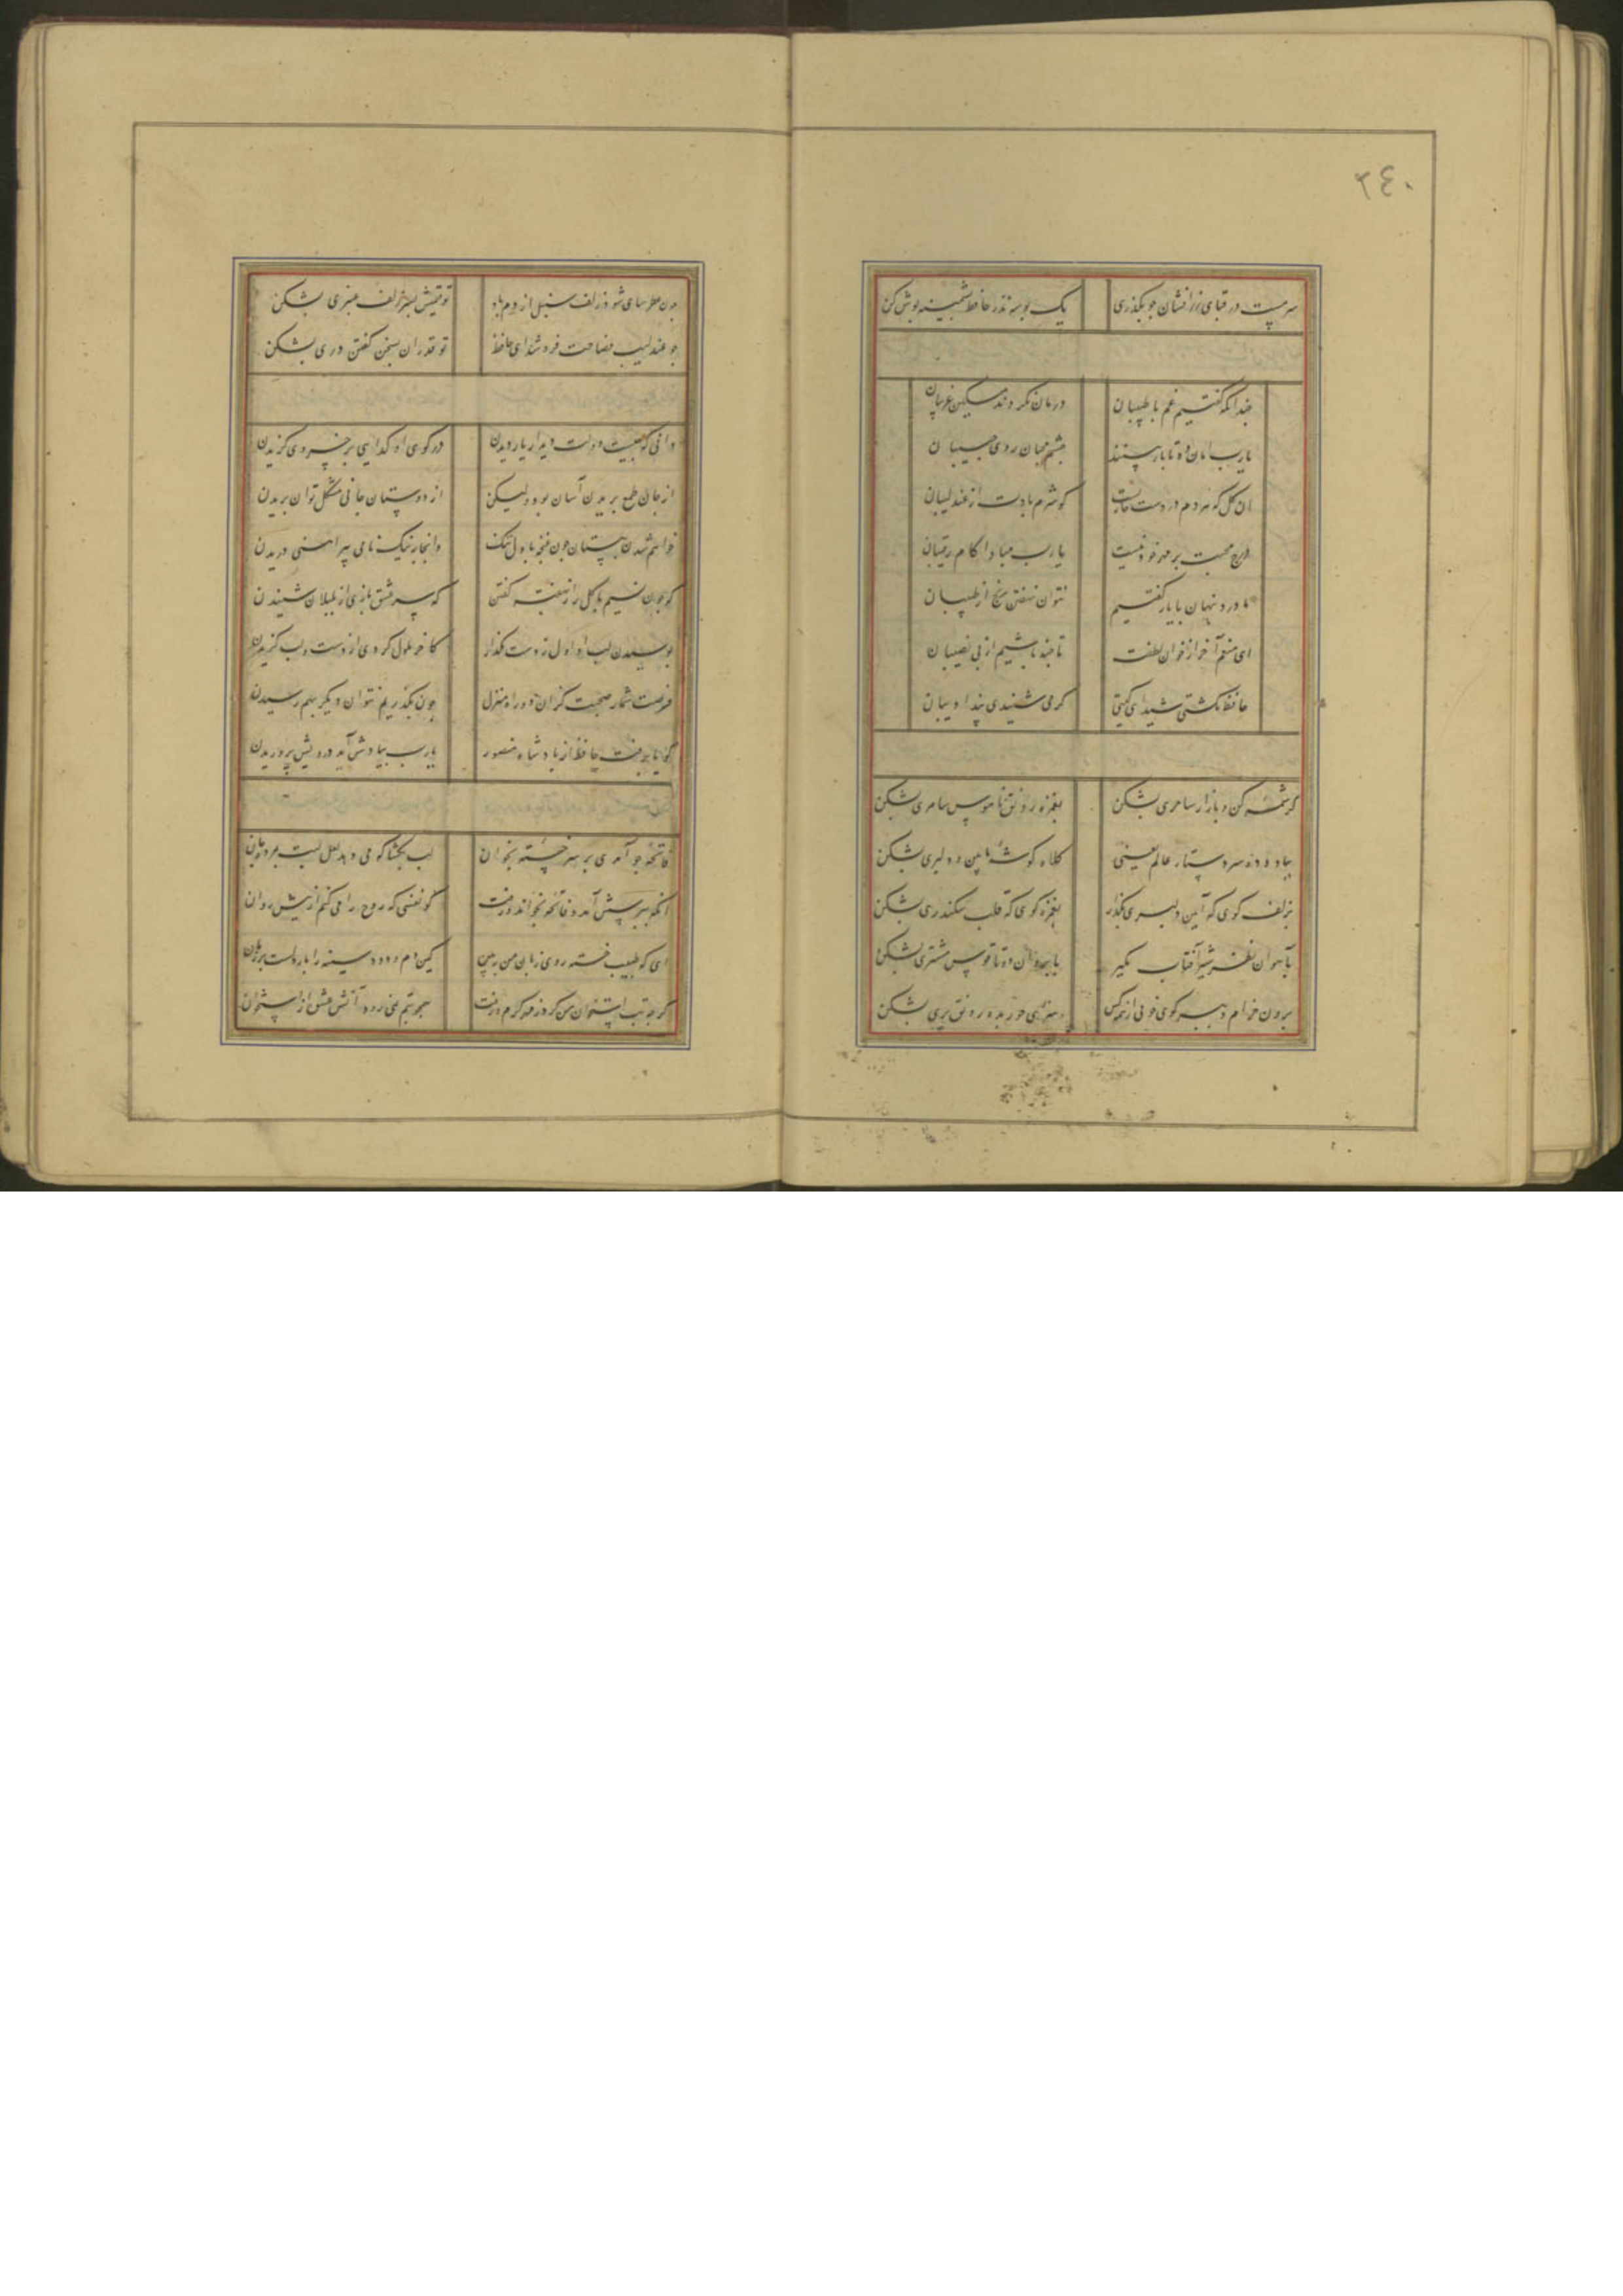 ٢٤٠
سرمست در قبای زرافشان چو بگذری یک بوسه نذر حافظ پشمینه پوش کن
چندانکه گفتیم غم با طبیبان درمان نکردند مسکین غریبان
یارب امان ده تا باز بیند چشم محبان روی حبیبان
ان گل که هر دم در دست خاریست کو شرم بادت از عندلیبان
درج محبت بر مهر خود نیست یا رب مبادا کام رقیبان
ما درد پنهان با یار گفتیم نتوان نهفتن رنج از طبیبان
ای منعم آخر از خوان لطفت تا چند باشیم از بی نصیبان
حافظ نکشتی شیدای کیتی کر می شنیدی پند ادیبان
کرشمه کن و بازار ساحری بشکن بغمزه رونق ناموس سامری بشکن
بباد ده سر و دستار عالمی یعنی کلاه کوشه بآیین دلبری بشکن
بزلف کوی که آیین دلبری بگذار بغمزه کوی که قلب سکندری بشکن
بآهوان نظر شیر آفتاب بکیر بابروان دوتا قوس مشتری بشکن
برون خرام و ببر کوی خوبی از همه کس سزای حور بده رونق پری بشکن
چون عطرسای شود زلف سنبل از دم باد تو قیمتش بسر زلف عنبری بشکن
چو عندلیب فصاحت فروشد ای حافظ تو قدر ان بسخن کفتن دری بشکن
دانی که چیست دولت دیدار یار دیدن در کوی او کدایی بر خسروی کزیدن
از جان طمع بریدن آسان بود ولیکن از دوستان جانی مشکل توان بریدن
خواهم شدن ببستان چون غنچه با دل تنک وانجا به نیک نامی پیراهنی دریدن
که چون نسیم با کل راز نهفته کفتن که سر عشق بازی از بلبلان شنیدن
بوسیدن لب او اول ز دست مکذار کاخر ملول کردی از دست و لب کزیدن
فرصت شمار صحبت کز ان دو راه منزل چون بگذریم نتوان دیکر بهم رسیدن
کویا برفت حافظ از یاد شاه منصور یارب بیادش آید درویش پروریدن
فاتحه چو آمدی بر سر خسته بخوان لب بکشا که می دهد لعل لبت بمرده جان
انکه بپرسش آمد و فاتحه خواند و رفت کو نفسی که روح را می کنم از پیش روان
ای که طبیب خسته روی زبان من ببین کین دم و دود سینه را بار دلست بر زبان
کرچه تب استخوان من کرد ز مهر کرم و رفت همچو تبم نمی رود آتش عشق از استخوان